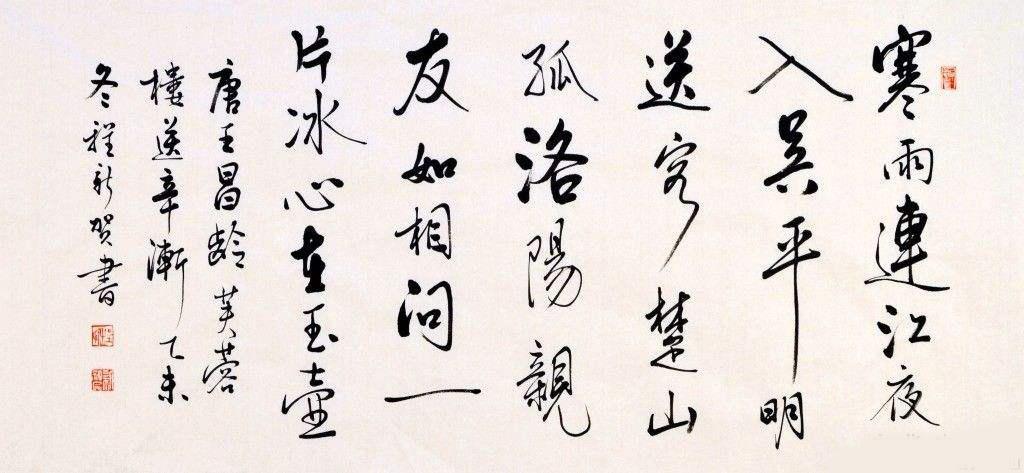 寒雨連江夜
入吳平明
送客楚山
孤洛陽親
友如相問一
片冰心在玉壺
唐王昌齡芙蓉
樓送辛漸乙未
冬程新賀書